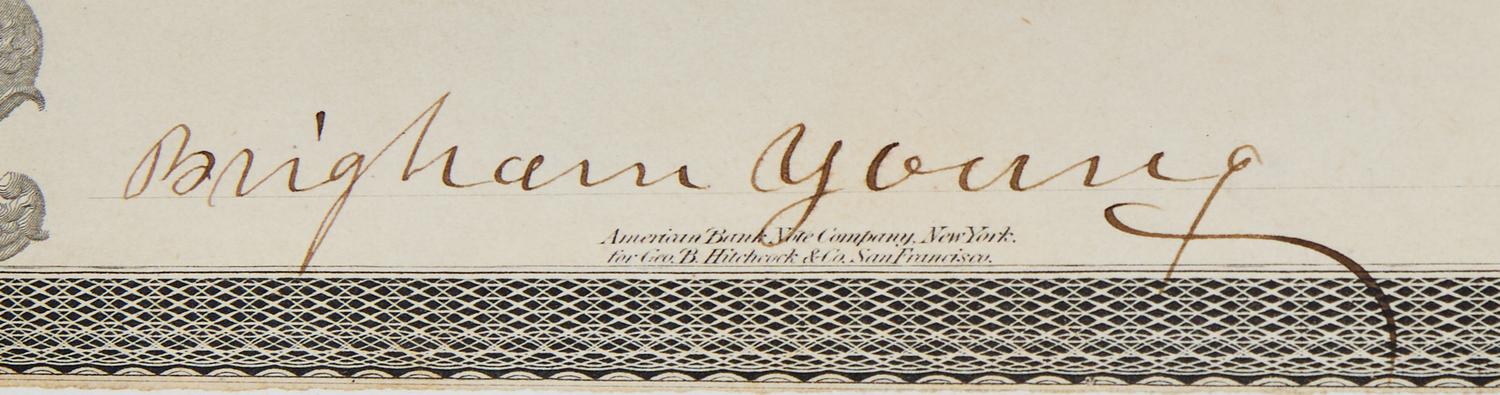 Brigham Young
American Bank Note Company, New York.
for Geo. B. Hitchcock & Co. San Francisco.